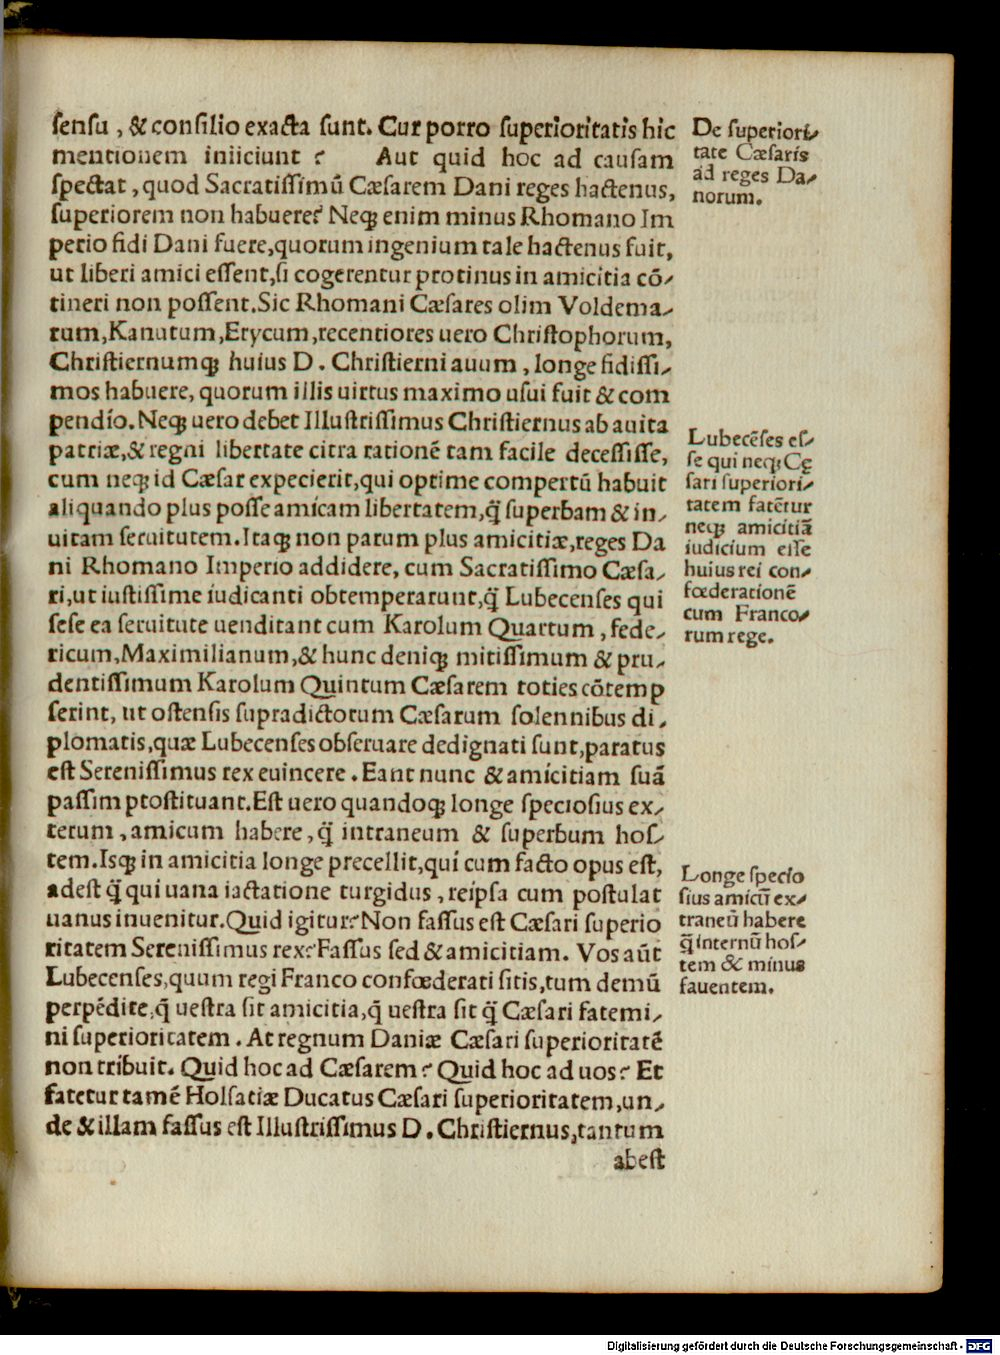 sensu, & consilio exacta sunt. Cur porro superioritatis hic
mentionem iniiciunt? Aut quid hoc ad causam
spectat, quod Sacratissimũ Cæsarem Dani reges hactenus,
superiorem non habuere? Neq; enim minus Rhomano Im
perio fidi Dani fuere, quorum ingenium tale hactenus fuit,
ut liberi amici essent, si cogerentur protinus in amicitia cõ-
tineri non possent. Sic Rhomani Cæsares olim Voldema-
rum, Kanutum, Erycum, recentiores uero Christophorum,
Christiernumq; huius D. Christierni auum, longe fidissi-
mos habuere, quorum illis uirtus maximo usui fuit & com
pendio. Neq; uero debet Illustrissimus Christiernus ab auita
patriæ, & regni libertate citra rationẽ tam facile decessisse,
cum neq; id Cæsar expecierit, qui optime compertũ habuit
aliquando plus posse amicam libertatem, q̃ superbam & in-
uitam seruitutem. Itaq; non parum plus amicitiæ, reges Da
ni Rhomano Imperio addidere, cum Sacratissimo Cæsa-
ri, ut iustissime iudicanti obtemperarunt, q̃ Lubecenses qui
sese ea seruitute uenditant cum Karolum Quartum, fede-
ricum, Maximilianum, & hunc deniq; mitissimum & pru-
dentissimum Karolum Quintum Cæsarem toties cõtemp
serint, ut ostensis supradictorum Cæsarum solennibus di-
plomatis, quæ Lubecenses obseruare dedignati sunt, paratus
est Serenissimus rex euincere. Eant nunc & amicitiam suã
passim prostituant. Est uero quandoq; longe speciosius ex-
terum, amicum habere, q̃ intraneum & superbum hos-
tem. Isq; in amicitia longe precellit, qui cum facto opus est,
adest q̃ qui uana iactatione turgidus, reipsa cum postulat
uanus inuenitur. Quid igitur? Non fassus est Cæsari superio
ritatem Serenissimus rex? Fassus sed & amicitiam. Vos aũt
Lubecenses, quum regi Franco confœderati sitis, tum demũ
perpẽdite, q̃ uestra sit amicitia, q̃ uestra sit q̃ Cæsari fatemi-
ni superioritatem. At regnum Daniæ Cæsari superioritatẽ
non tribuit. Quid hoc ad Cæsarem? Quid hoc ad uos? Et
fatetur tamẽ Holsatiæ Ducatus Cæsari superioritatem, un-
de & illam fassus est Illustrissimus D. Christiernus, tantum
abest
De superiori-
tate Cæsaris
ad reges Da-
norum.
Lubecẽses es-
se qui neq; Cę
sari superiori-
tatem fatẽtur
neq; amicitiã
iudicium esse
huius rei con-
fœderationẽ
cum Franco-
rum rege.
Longe specio
sius amicũ ex-
traneũ habere
q̃ internũ hos-
tem & minus
fauentem.
Digitalisierung gefördert durch die Deutsche Forschungsgemeinschaft - DFG